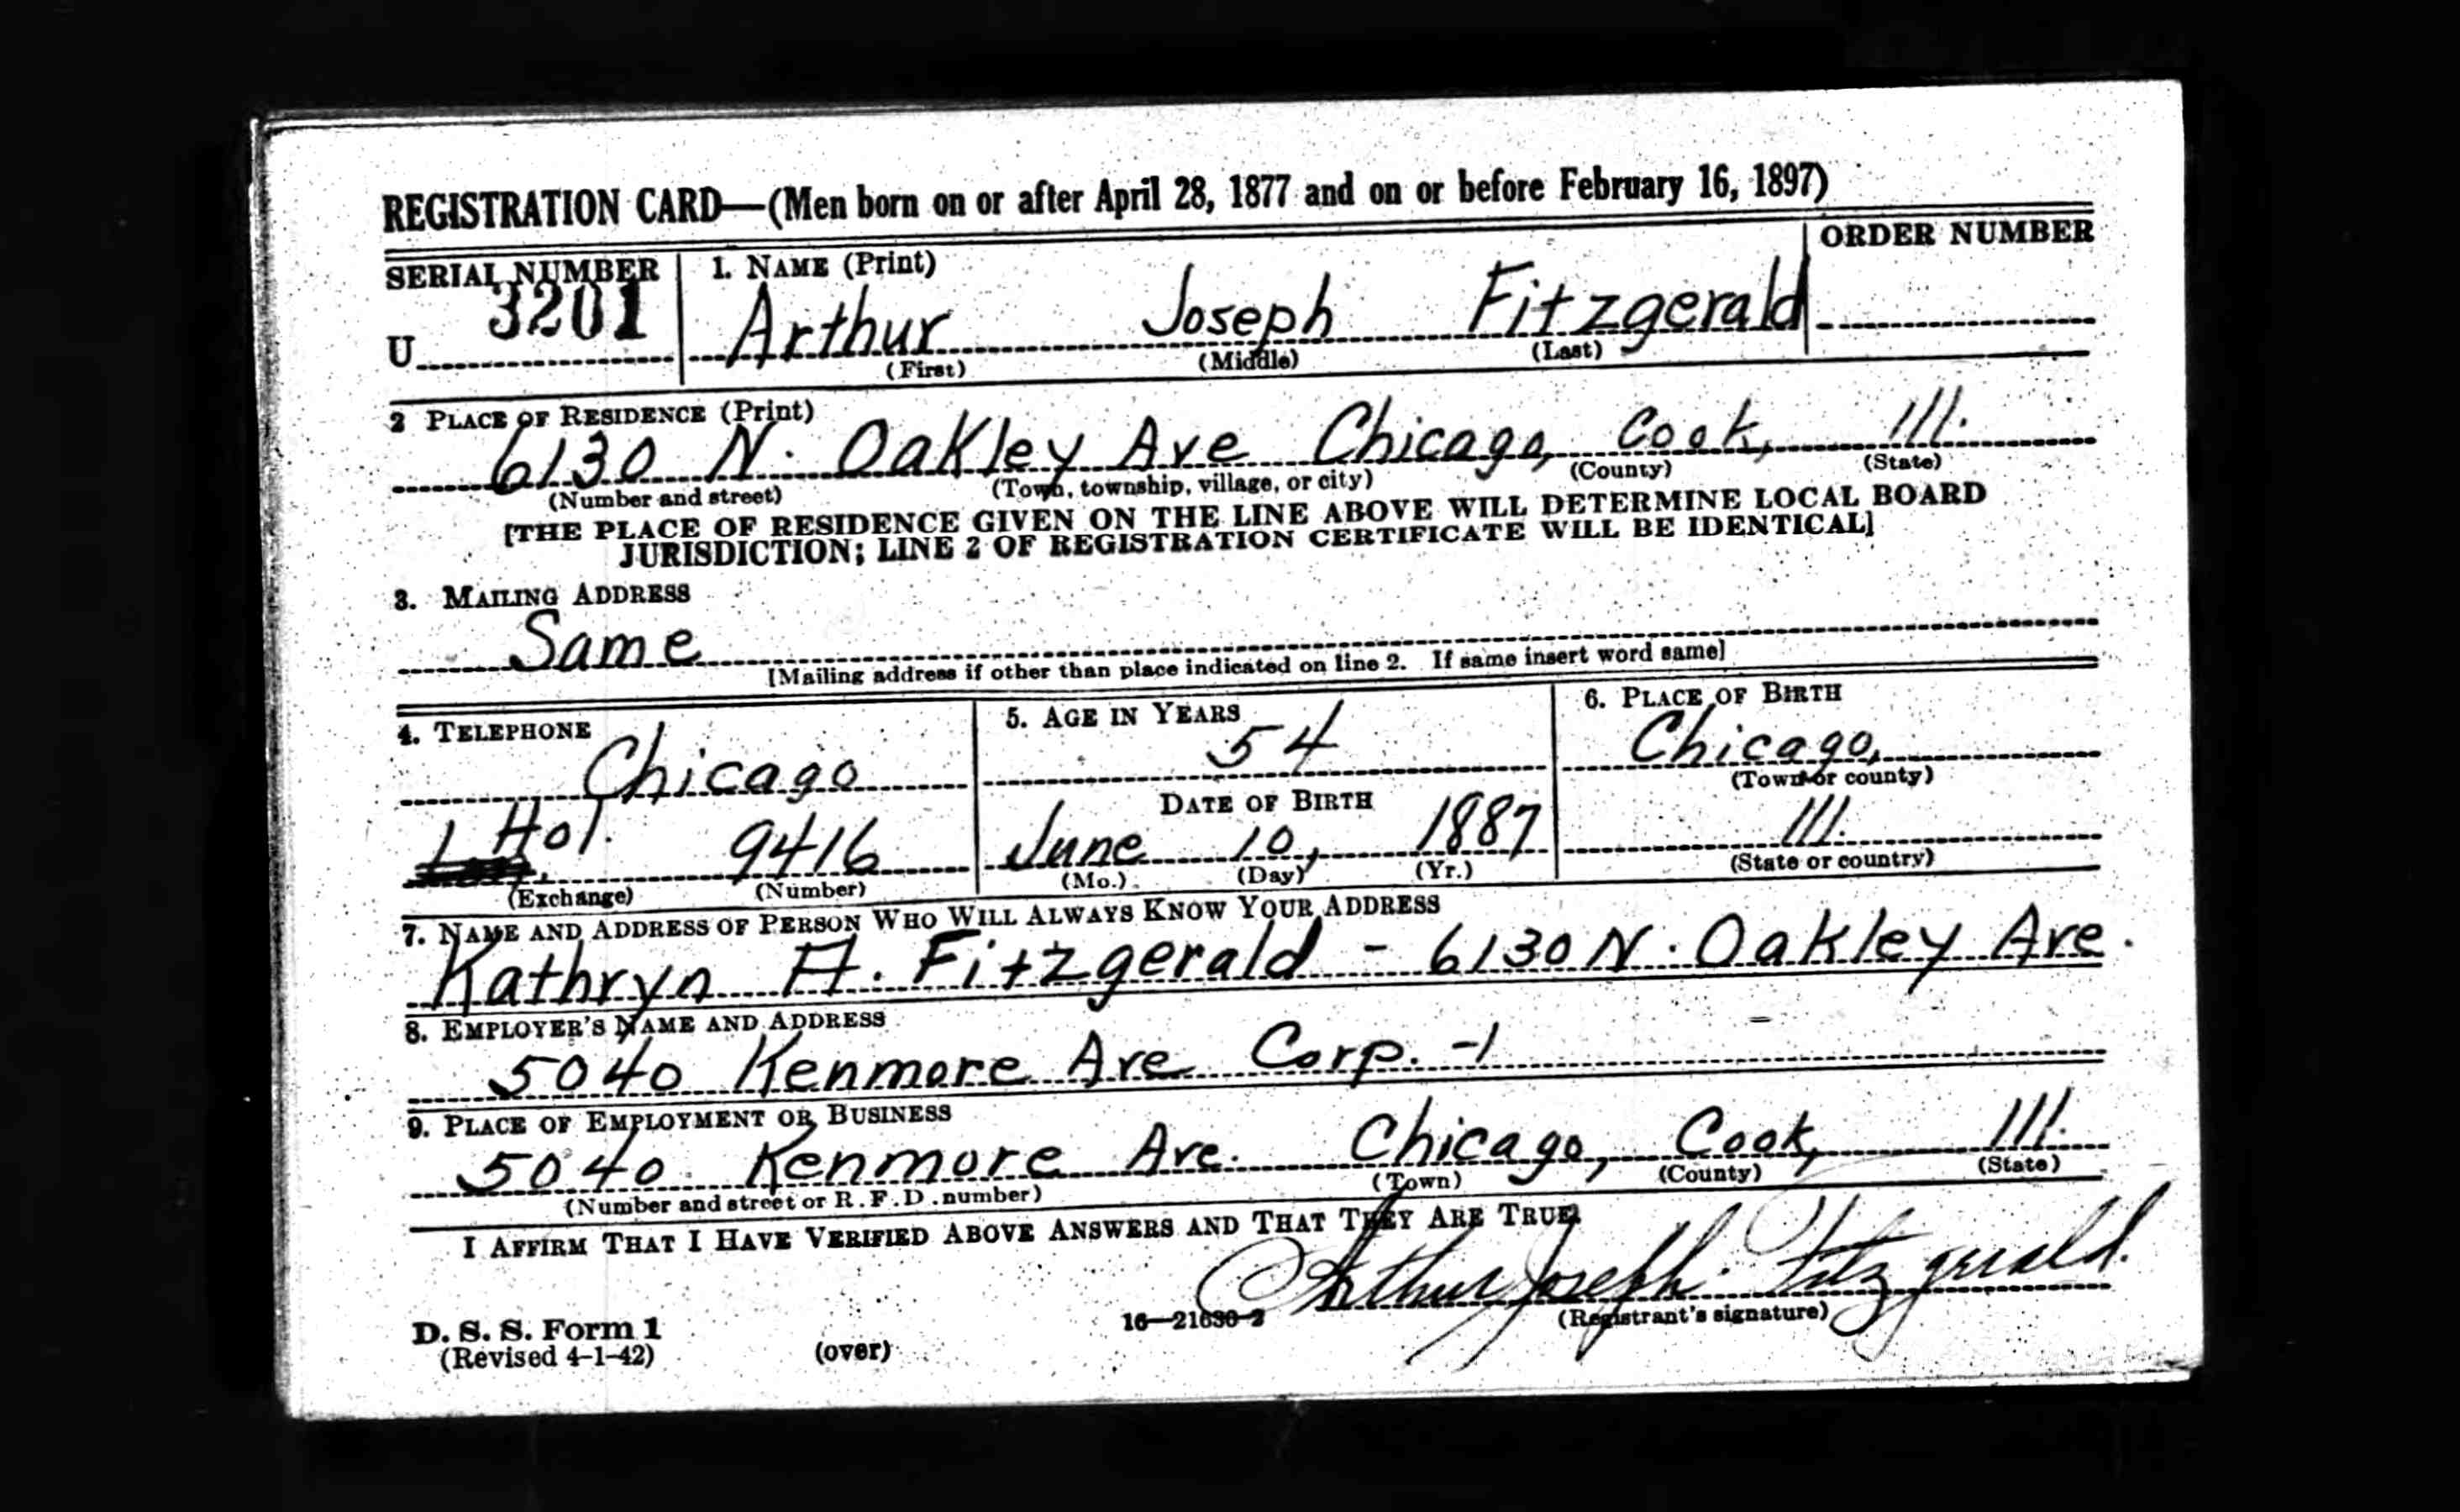 REGISTRATION CARD—(Men born on or after April 28, 1877 and on or before February 16, 1897)
SERIAL NUMBER 1. NAME (Print) ORDER NUMBER
U 3201 Arthur Joseph Fitzgerald
(First) (Middle) (Last)
2 PLACE OF RESIDENCE (Print)
6130 N. Oakley Ave Chicago, Cook, Ill.
(Number and street) (Town, township, village, or city) (County) (State)
[THE PLACE OF RESIDENCE GIVEN ON THE LINE ABOVE WILL DETERMINE LOCAL BOARD
JURISDICTION; LINE 2 OF REGISTRATION CERTIFICATE WILL BE IDENTICAL]
3. MAILING ADDRESS
Same
[Mailing address if other than place indicated on line 2. If same insert word same]
4. TELEPHONE 5. AGE IN YEARS 6. PLACE OF BIRTH
Chicago 54 Chicago,
(Town or county)
DATE OF BIRTH
Hol. 9416 June 10, 1887 Ill.
(Exchange) (Number) (Mo.) (Day) (Yr.) (State or country)
7. NAME AND ADDRESS OF PERSON WHO WILL ALWAYS KNOW YOUR ADDRESS
Kathryn A. Fitzgerald - 6130 N. Oakley Ave.
8. EMPLOYER'S NAME AND ADDRESS
5040 Kenmore Ave Corp. -1
9. PLACE OF EMPLOYMENT OR BUSINESS
5040 Kenmore Ave. Chicago, Cook, Ill.
(Number and street or R. F. D. number) (Town) (County) (State)
I AFFIRM THAT I HAVE VERIFIED ABOVE ANSWERS AND THAT THEY ARE TRUE.
Arthur Joseph Fitzgerald.
D. S. S. Form 1 16—21630-2 (Registrant's signature)
(Revised 4-1-42) (over)